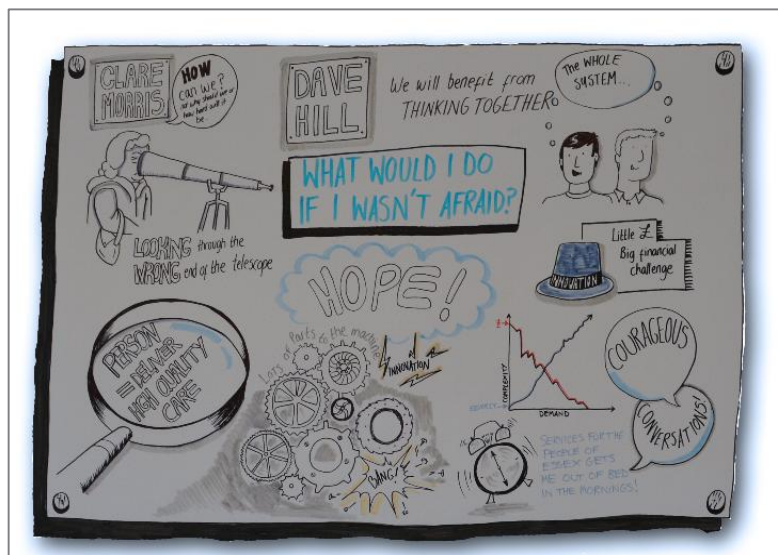 CLARE
MORRIS
HOW
can we?
be.
DAVE
HILL
We will benefit from
THINKING TOGETHER
The WHOLE
SYSTEM...
WHAT WOULD I DO
IF I WASN'T AFRAID?
LOOKING through the
WRONG end of the telescope
HOPE!
Little £
Big financial
challenge
INNOVATION
PERSON
= DELIVER
HIGH QUALITY
CARE
Lots of Parts to the machine
INNOVATION
BANG!
£
COMPLEXITY
DEMAND
COURAGEOUS
CONVERSATIONS!
SERVICES FOR THE
PEOPLE OF
ESSEX GETS
ME OUT OF BED
IN THE MORNINGS!